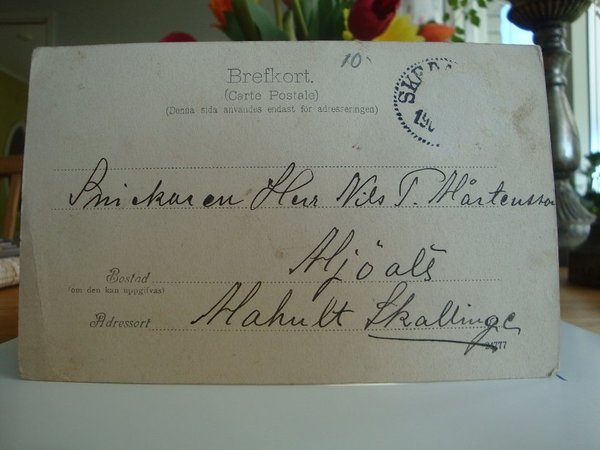 10
Brefkort.
(Carte Postale)
(Denna sida användes endast för adresseringen)
Snickaren Herr Nils P. Mårtensson
Bostad
(om den kan uppgifvas)
Adressort
Mahult Skallinge